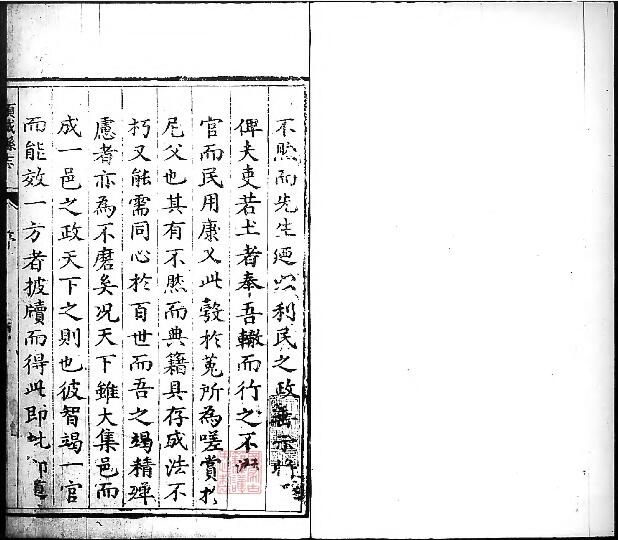 不然而先生廼以利民之政
俾夫吏若土者奉吾轍而行之不
官而民用康乂此彀於菟所為嗟賞
尼父也其有不然而典籍具存成法不
朽又能需同心於百世而吾之竭精殫
慮者亦為不磨矣况天下雖大集邑而
成一邑之政天下之則也彼智竭一官
而能效一方者披牘而得此即
項城縣志
序